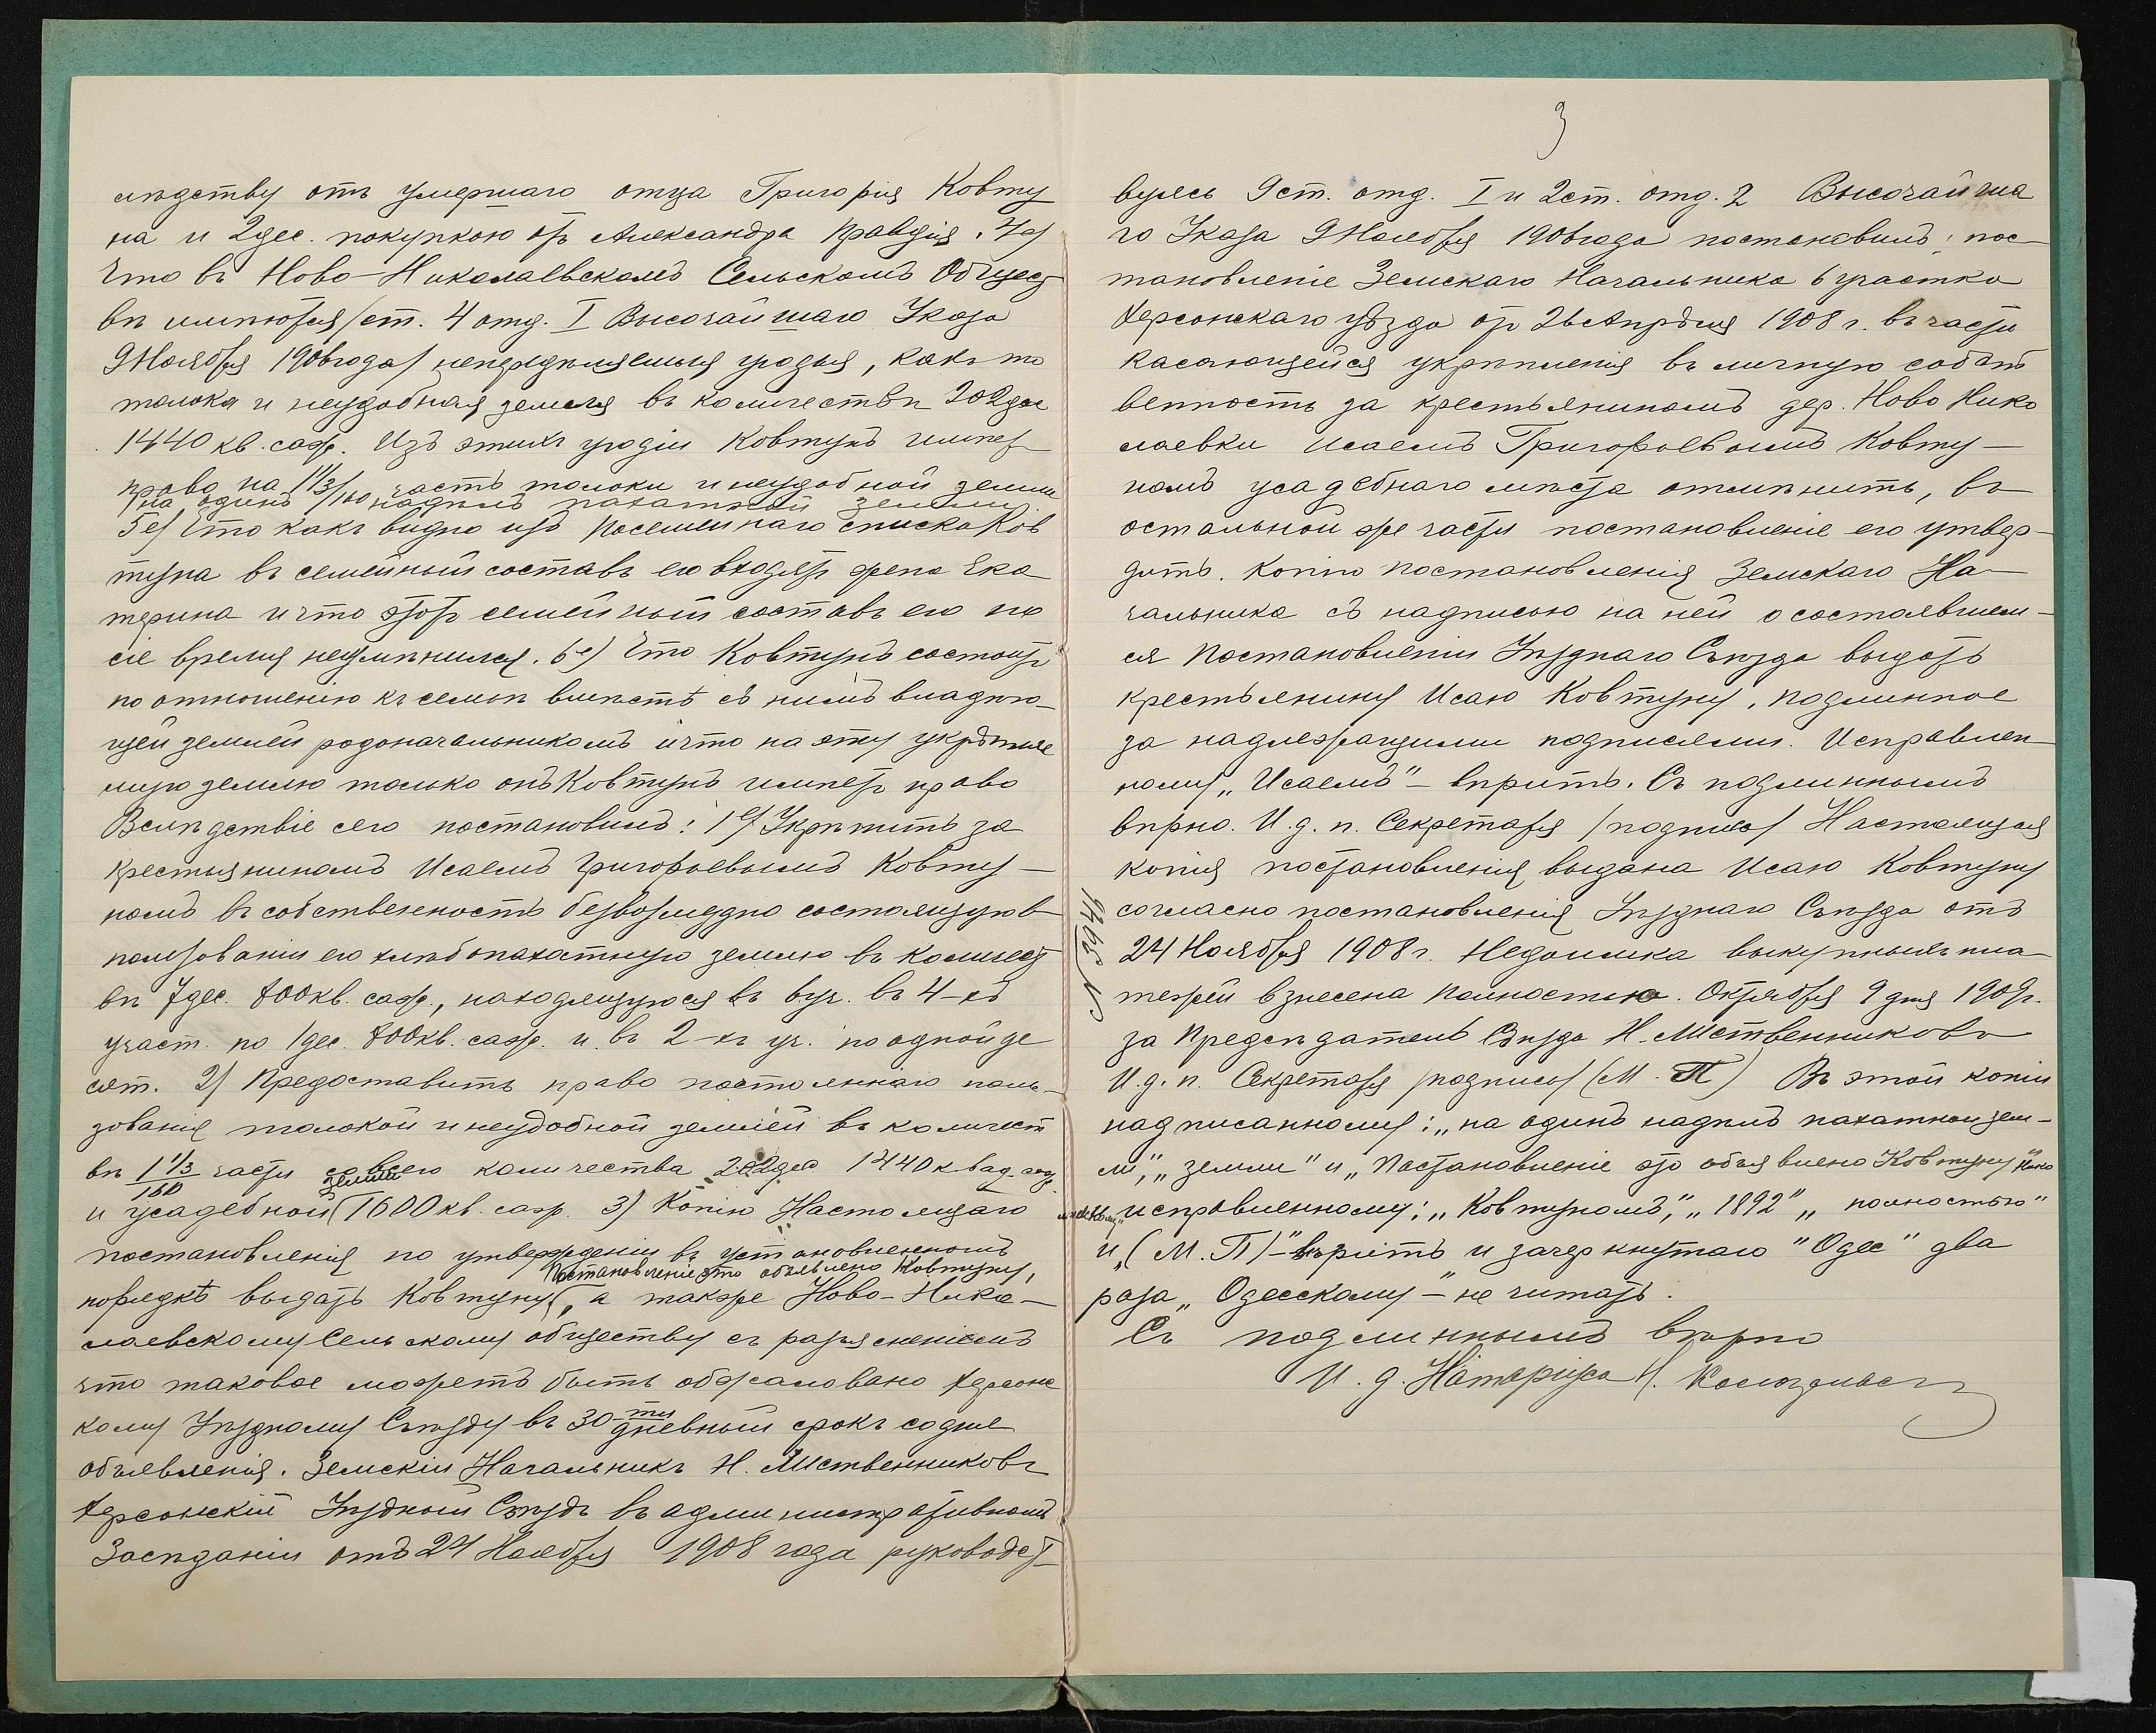 слѣдству отъ умершаго отца Григорія Ковту
на и 2 дес. покупкою отъ Александра Кравція. 4е/
Что въ Ново-Николаевскомъ Сельскомъ Общест
вѣ имѣются /ст. 4 отд. I Высочайшаго Указа
9 Ноября 1906 года/ непередѣляемыя угодья, какъ то
толока и неудобная земля въ количествѣ 202 дес
1440 кв. саж. Изъ этихъ угодій Ковтунъ имѣетъ
право на 1 1/3/160 часть толоки и неудобной земли
на одинъ надѣлъ пахатной земли.
5е/ Что какъ видно изъ посемейнаго списка Ков
туна въ семейный составъ его входятъ жена Ека
терина и что этотъ семейный составъ его по
сіе время неизмѣнился. 6е/ Что Ковтунъ состоитъ
по отношенію къ семьѣ вмѣстѣ съ нимъ владѣю-
щей землей родоначальникомъ и что на эту укрѣпляе
мую землю только онъ Ковтунъ имѣетъ право
Вслѣдствіе сего постановилъ: 1е/ Укрѣпить за
крестьяниномъ Исаемъ Григорьевымъ Ковту-
номъ въ собственность безвозмездно состоящую въ
пользованіи его хлѣбопахатную землю въ количест
вѣ 7 дес. 800 кв. саж., находящуюся въ 6 уч. въ 4-хъ
участ. по 1 дес. 800 кв. саж. и въ 2-хъ уч. по одной де
сят. 2/ Предоставить право постояннаго поль-
зованія толокой и неудобной землей въ количест
вѣ 1 1/3/160 части со всего количества 202 дес 1440 квад. саж.
земли
и усадебной (1600 кв. саж. 3) Копію Настоящаго
постановленія по утвержденіи въ установленномъ
Постановленіе это объявлено Ковтуну,
порядкѣ выдать Ковтуну(, а также Ново-Нико-
лаевскому Сельскому обществу съ разъясненіемъ
что таковое можетъ быть обжаловано Херсонс
кому Уѣздному Съѣзду въ 30-ти дневный срокъ со дня
объявленія. Земскій Начальникъ Н. Лиственниковъ
Херсонскій Уѣздный Съѣздъ въ административномъ
Засѣданіи отъ 24 Ноября 1908 года руководст-
3
вуясь 9 ст. отд. I и 2 ст. отд. 2 Высочайша
го Указа 9 Ноября 1906 года постановилъ: пос-
тановленіе Земскаго Начальника 6 участка
Херсонскаго уѣзда отъ 26 Апрѣля 1908 г. въ части
касающейся укрѣпленія въ личную собст
венность за крестьяниномъ дер. Ново Нико
лаевки Исаемъ Григорьевымъ Ковту-
номъ усадебнаго мѣста отмѣнить, въ
остальной же части постановленіе его утвер-
дить. Копію постановленія Земскаго На-
чальника съ надписью на ней о состоявшем-
ся Постановленіи Уѣзднаго Съѣзда выдать
крестьянину Исаю Ковтуну, подлинное
за надлежащими подписями. Исправлен-
ному „Исаемъ" - вѣрить. Съ подлиннымъ
вѣрно. И. д. п. Секретаря /подпись/ Настоящая
копія постановленія выдана Исаю Ковтуну
согласно постановленія Уѣзднаго Съѣзда отъ
24 Ноября 1908 г. Недоимка выкупныхъ пла-
тежей взнесена полностью. Октября 9 дня 1909 г.
за Предсѣдатель Съѣзда Н. Лиственниковъ
И. д. п. Секретаря /подпись/ (М. П) Въ этой копіи
надписанному: „на одинъ надѣлъ пахатной зем-
ли", „земли" и „Постановленіе это объявлено Ковтуну"
исправленному: „Ковтуномъ", „1892" „полностью"
и „(М. П)"-вѣрить и зачеркнутаго "Одес" два
раза „Одесскому"- не читать.
Съ подлиннымъ вѣрно
И. д. Нотаріуса